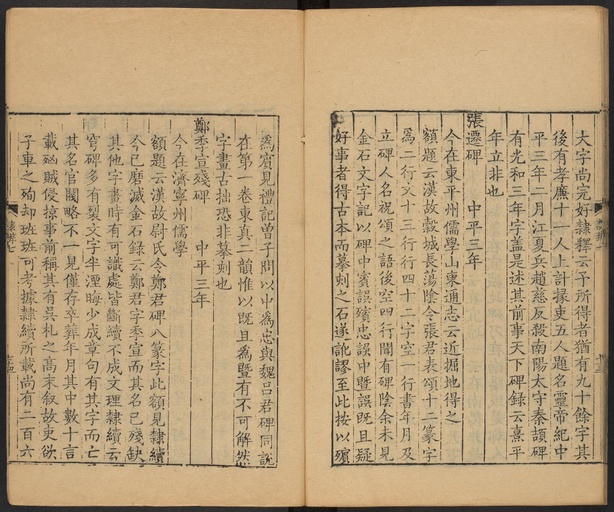 大字尚完好隸釋云予所得者猶有九十餘字其
後有孝廉十一人上計掾吏五人題名靈帝紀中
平三年二月江夏兵趙慈反殺南陽太守秦頡碑
有光和三年字盖是述其前事天下碑錄云熹平
年立非也
張遷碑 中平三年
今在東平州儒學山東通志云近掘地得之
額題云漢故穀城長蕩陰令張君表頌十二篆字
爲二行文十三行行四十二字空一行書年月及
立碑人名祝頌之語後空四行間有碑陰余未見
金石文字記以碑中賓誤殯忠誤中暨誤既且疑
好事者得古本而摹刻之石遂訛謬至此按以殯
爲賓見禮記曽子問以中爲忠與魏吕君碑同説
在第一卷東眞二韻惟以既且爲暨有不可解然
字畫古拙恐非摹刻也
鄭季宣殘碑 中平三年
今在濟寧州儒學
額題云漢故尉氏令鄭君碑八篆字此額見隸續
今已磨滅金石錄云鄭君字季宣而其名已殘缺
其他字畫時有可識處皆斷續不成文理隸續云
穹碑多有裂文字半湮晦少成章句有其字而亡
其名官閥略不一見僅存卒葬年月其中數十言
載㓙賊侵掠事前稱其有吳札之髙末叙故吏欲
子車之殉却班班可考據隸續所載尚有二百六
隸辨七